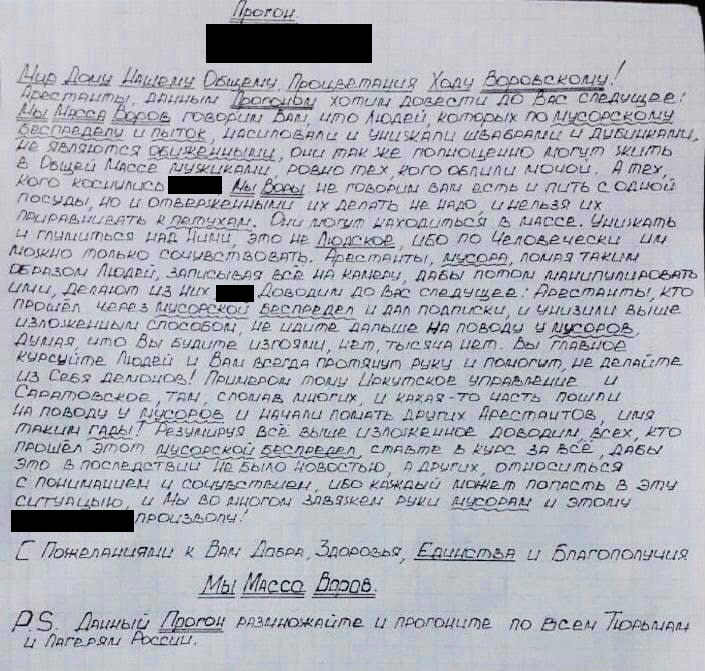 Прогон.
Мир Дому Нашему Общему, Процветания Ходу Воровскому!
Арестанты, данным Прогоном хотим довести до Вас следущее:
Мы Масса Воров говорим Вам, что Людей, которых по мусорскому
беспределу и пыток, насиловали и унижали швабрами и дубинками,
не являются обиженными, они так же полноценно могут жить
в Общей Массе мужиками, ровно тех, кого облили мочой. А тех,
кого коснулись Мы Воры не говорим вам есть и пить с одной
посуды, но и отверженными их делать не надо, и нельзя их
приравнивать к петухам. Они могут находиться в массе. Унижать
и глумиться над Ними, это не Людское, ибо по Человечески им
можно только сочувствовать. Арестанты, мусора, ломая таким
образом Людей, записывая всё на камеру, дабы потом манипулировать
ими, делают из них Доводим до Вас следущее: Арестанты, кто
прошёл через мусорской беспредел и дал подписки, и унизили выше
изложенным способом, не идите дальше на поводу у мусоров,
думая, что Вы будите изгоями, нет, тысяча нет. Вы главное
курсуйте Людей и Вам всегда протянут руку и помогут, не делайте
из Себя демонов! Примером тому Иркутское управление и
Саратовское, там, сломав многих, и какая-то часть пошли
на поводу у мусоров и начали ломать других Арестантов, имя
таким гады! Резумируя всё выше изложенное доводим, всех, кто
прошёл этот мусорской беспредел, ставте в курс за всё, дабы
это в последствии не было новостью, а других, относиться
с пониманием и сочувствием, ибо каждый может попасть в эту
ситуацыю, и Мы во многом завяжем руки мусорам и этому
произволу!
С Пожеланиями к Вам Добра, Здоровья, Единства и Благополучия
Мы Масса Воров.
P.S. Данный Прогон размножайте и прогоните по всем Тюрьмам
и Лагерям России.